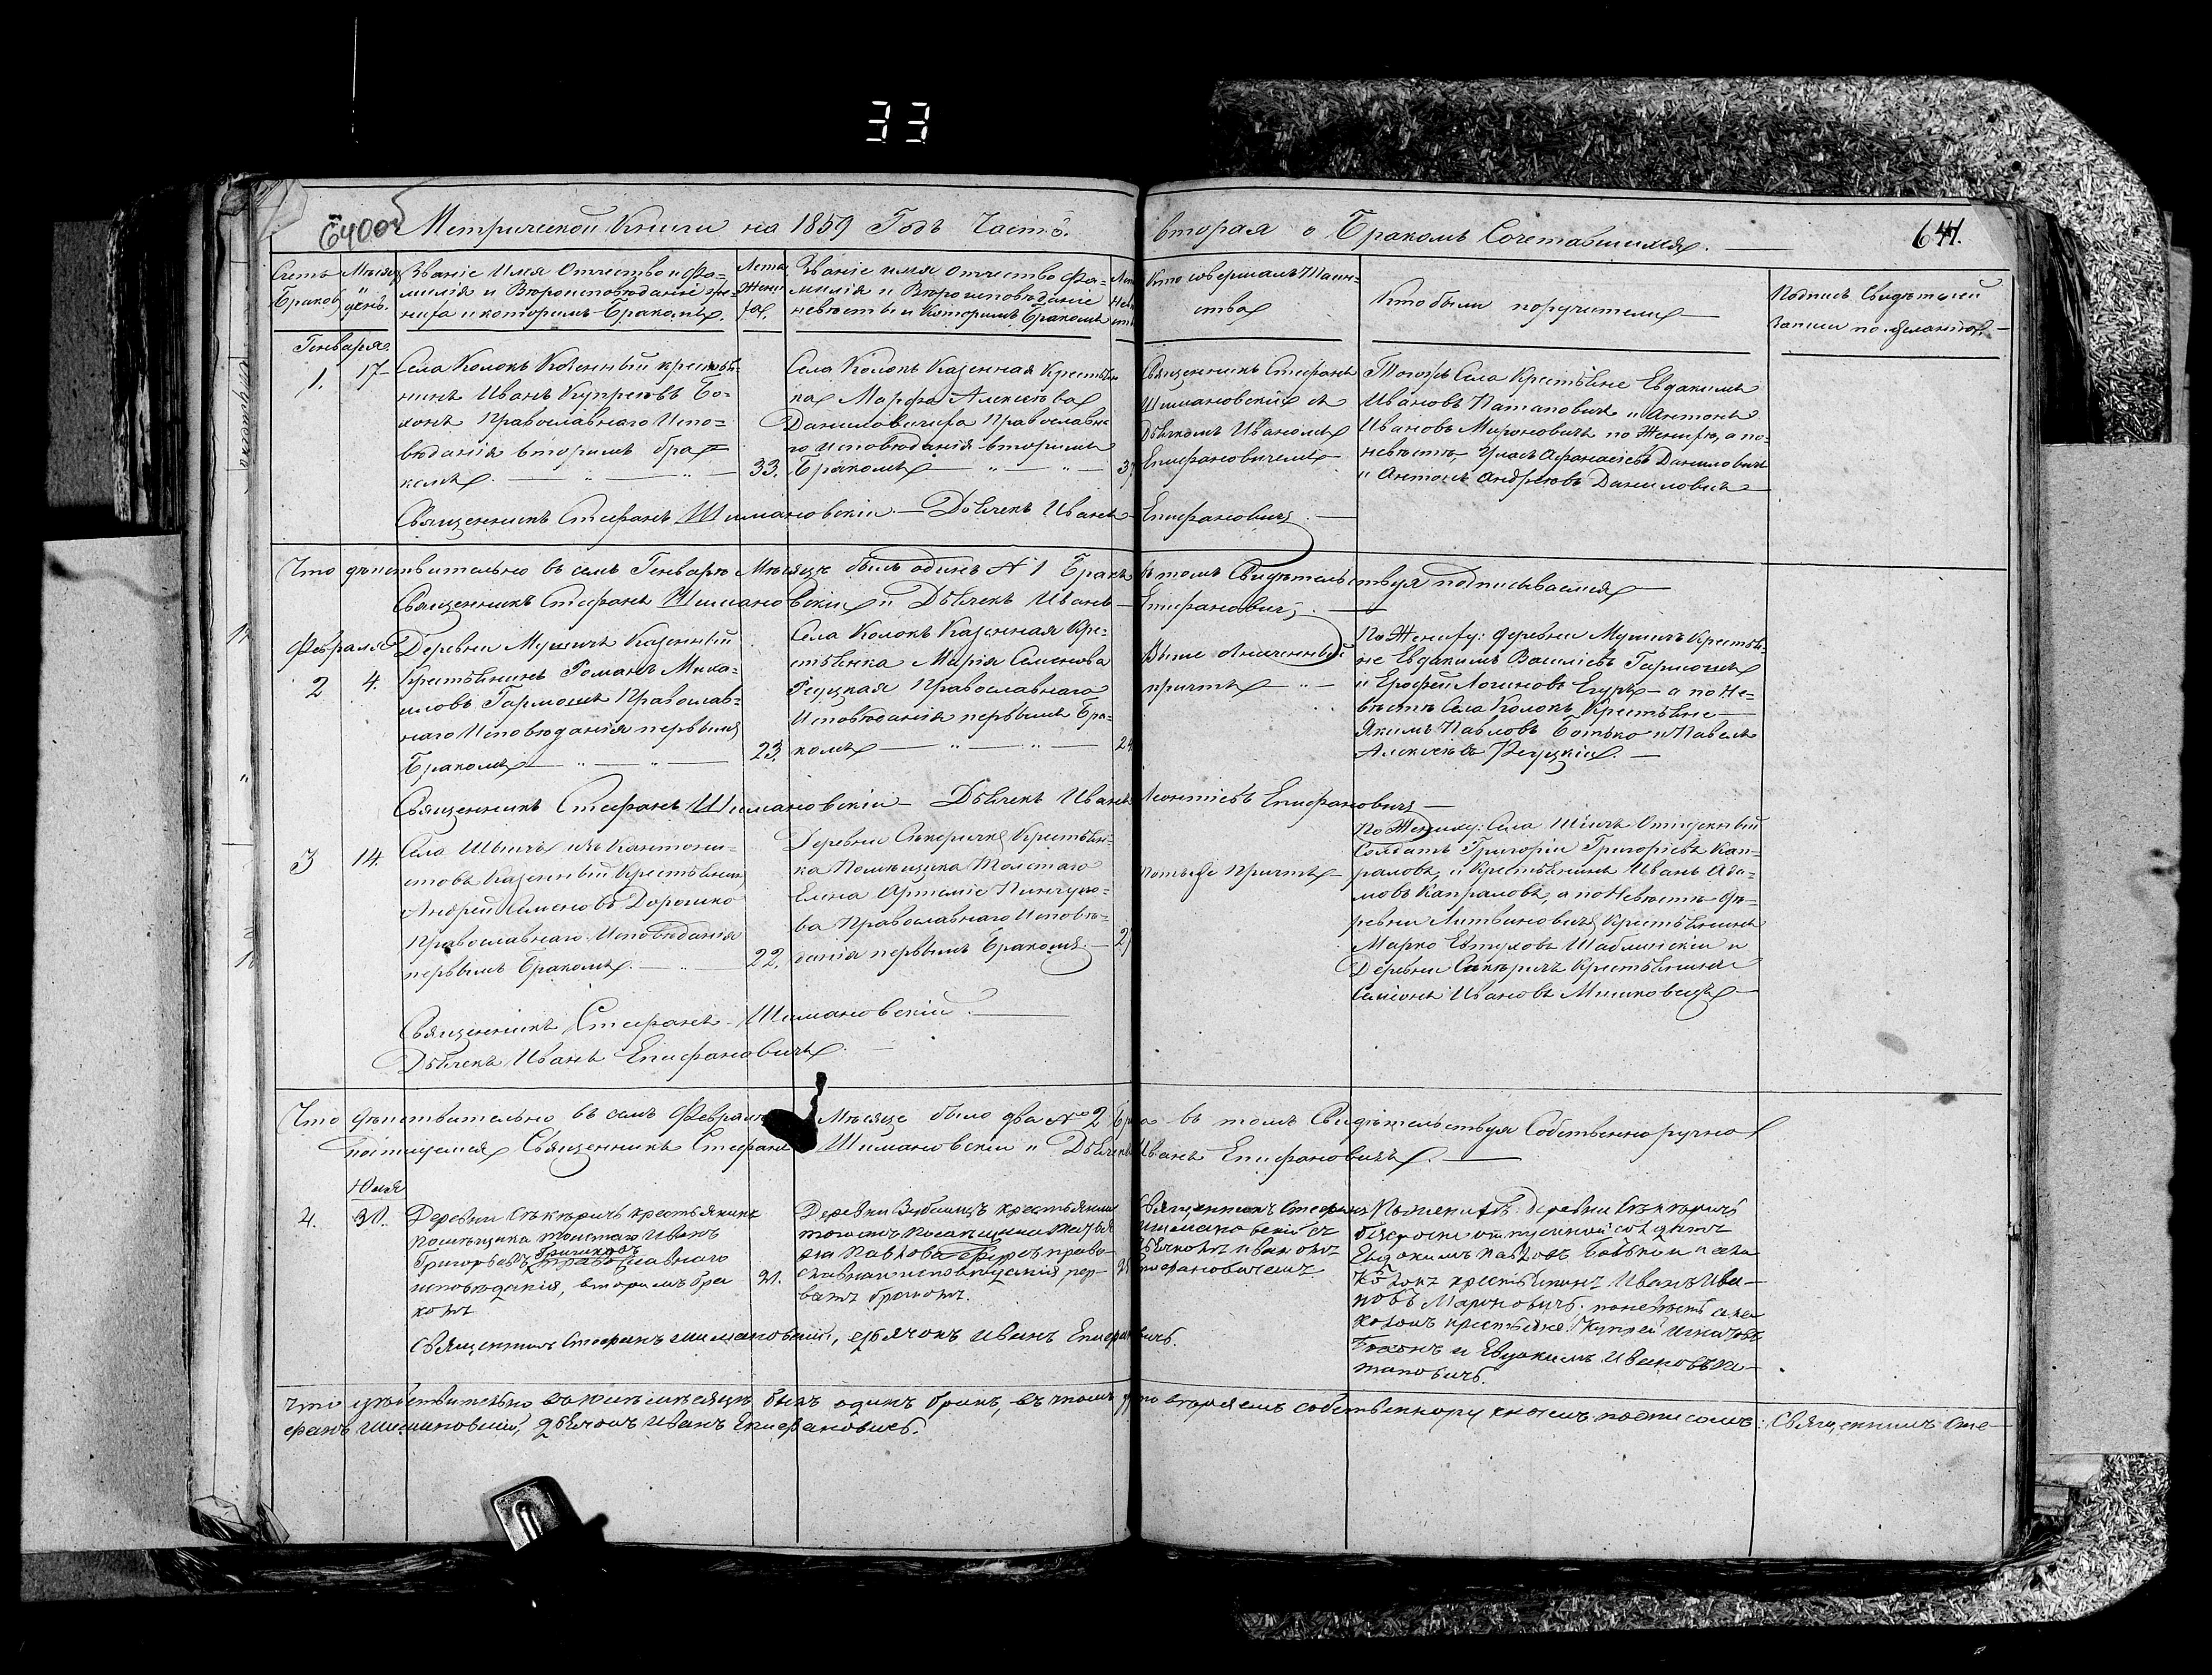 33
640об
Метрической Книги на 1859 Годъ Часть
вторая о Бракомъ Сочетавшихся.
641.
Счетъ Браковъ
Мѣсяцъ и день.
Званіе Имя Отчество и Фа=
милія и Вѣроисповѣданіе же=
ниха и которымъ Бракомъ.
Лета Жени
ха.
Званіе имя отчество Фа=
милія и Вѣроисповѣданіе
невѣсты и Которымъ Бракомъ
Кто совершалъ Таин=
ство
Кто были поручители
Подпись Свидѣтелей
записи по желанію
Генваря
1. 17
Села Колокъ Казенный кресть
нинъ Иванъ Купреевъ Бо=
хонъ Православнаго Испо=
вѣданія вторимъ бра=
комъ.
33.
Села Колокъ Казенная Крестьян
ка Марфа Алексѣева
Даниловичева Православна
го Исповѣданія вторимъ
Бракомъ
Священникъ Стефанъ
Шимановскій съ
Дьячкомъ Иваномъ
Епифановичемъ
Тогожъ Села Крестьяне Евдакимъ
Ивановъ Патаповичъ и Антонъ
Ивановъ Мироновичъ по Жениху, а по
невѣстѣ, Уласъ Афанасіевъ Даниловичъ
и Антонъ Андреевъ Даниловичъ
Священникъ Стефанъ Шимановскій Дьячекъ Иванъ Епифановичъ
Что дѣйствительно въ семъ Генварѣ Мѣсяцѣ былъ одинъ № 1 Бракъ въ томъ Свидѣтельствуя подписываемся
Священникъ Стефанъ Шимановскій и Дьячекъ Иванъ Епифановичъ.
Февраля
2 4.
Деревни Казенный
Крестьянинъ Романъ Миха=
иловъ Гармошъ Православ=
наго Исповѣданія первымъ
Бракомъ
23.
Села Колокъ Казенная Кре=
стьянка Марія Семенова
Рецкая Православнаго
Исповѣданія первымъ Бра=
комъ
Выше Означенный
причтъ
По Жениху: деревни Крестья=
не Евдакимъ Василіевъ Гармошъ
и Ерофей Логиновъ а по Не=
вѣстѣ Села Колокъ Крестьяне
Якимъ Павловъ Ботько и Павелъ
Алексѣевъ Рецкій.
Священникъ Стефанъ Шимановскій Дьячекъ Иванъ Леонтіевъ Епифановичъ
3 14.
Села изъ Кантони=
стовъ Казенный Крестьянинъ
Андрей Семеновъ Дорошко
Православнаго Исповѣданія
первымъ Бракомъ.
22.
Деревни Секеричъ Крестьян=
ка Помѣщика Толстаго
Елена Артеміе
ва Православнаго Исповѣ=
данія первымъ Бракомъ.
Тотъ же Причтъ
По Жениху: Села Отпускный
Солдатъ Григорій Григоріевъ Кап=
раловъ, и Крестьянинъ Иванъ Ада=
мовъ Капраловъ, а по Невѣстѣ Де=
ревни Литвиновичъ Крестьянинъ
Марко Евтуховъ Шаблинскій и
Деревни Секеричъ Крестьянинъ
Симіонъ Ивановъ Мишковецъ
Священникъ Стефанъ Шимановскій.
Дьячекъ Иванъ Епифановичъ.
Что дѣйствительно въ семъ Февралѣ Мѣсяцѣ было два № 2 Бра въ томъ Свидѣтельствуя Собственноручно
Священникъ Стефанъ Шимановскій и Дьячекъ Иванъ Епифановичъ.
Юля
4.
Деревни Секеричъ крестьянинъ
помѣщика Толстаго Иванъ
Григорьевъ православнаго
исповѣданія, вторимъ бра
комъ
Деревни крестьянка
Павлова право
славнаго исповѣданія, пер
вимъ бракомъ.
Священникъ Стефанъ
Шимановскій съ
дьячкомъ Иваномъ
Епифановичемъ.
По женихѣ: деревни Секеричъ
безсрочно отпускной солдатъ
Евдокимъ Павловъ Ботько и села
Колокъ крестьянинъ Иванъ Ива
новъ Мароновичъ; по невѣстѣ села
Колокъ крестьяне: Купрей
и Евдокимъ Ивановъ Па
таповичъ.
Священникъ Стефанъ Шимановскій, дьячокъ Иванъ Епифановичъ.
Что дѣйствительно въ юлѣ мѣсяцѣ былъ одинъ бракъ, въ томъ удостовѣряемъ собственноручнымъ подписомъ: Священникъ Сте
фанъ Шимановскій, дьячокъ Иванъ Епифановичъ.